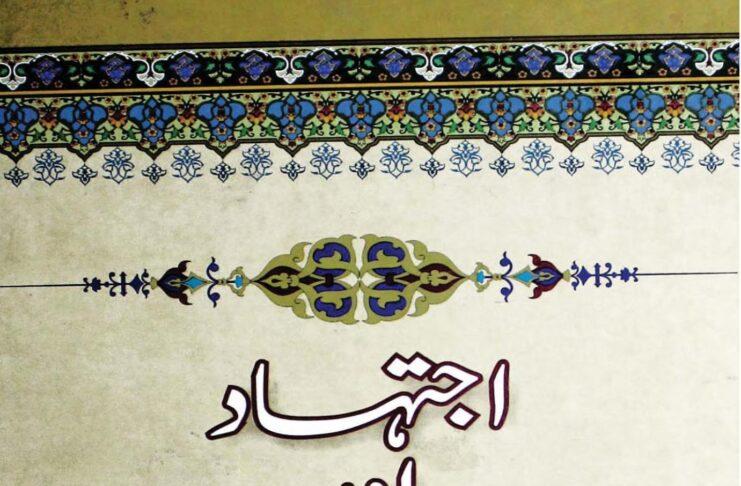 اجتہاد